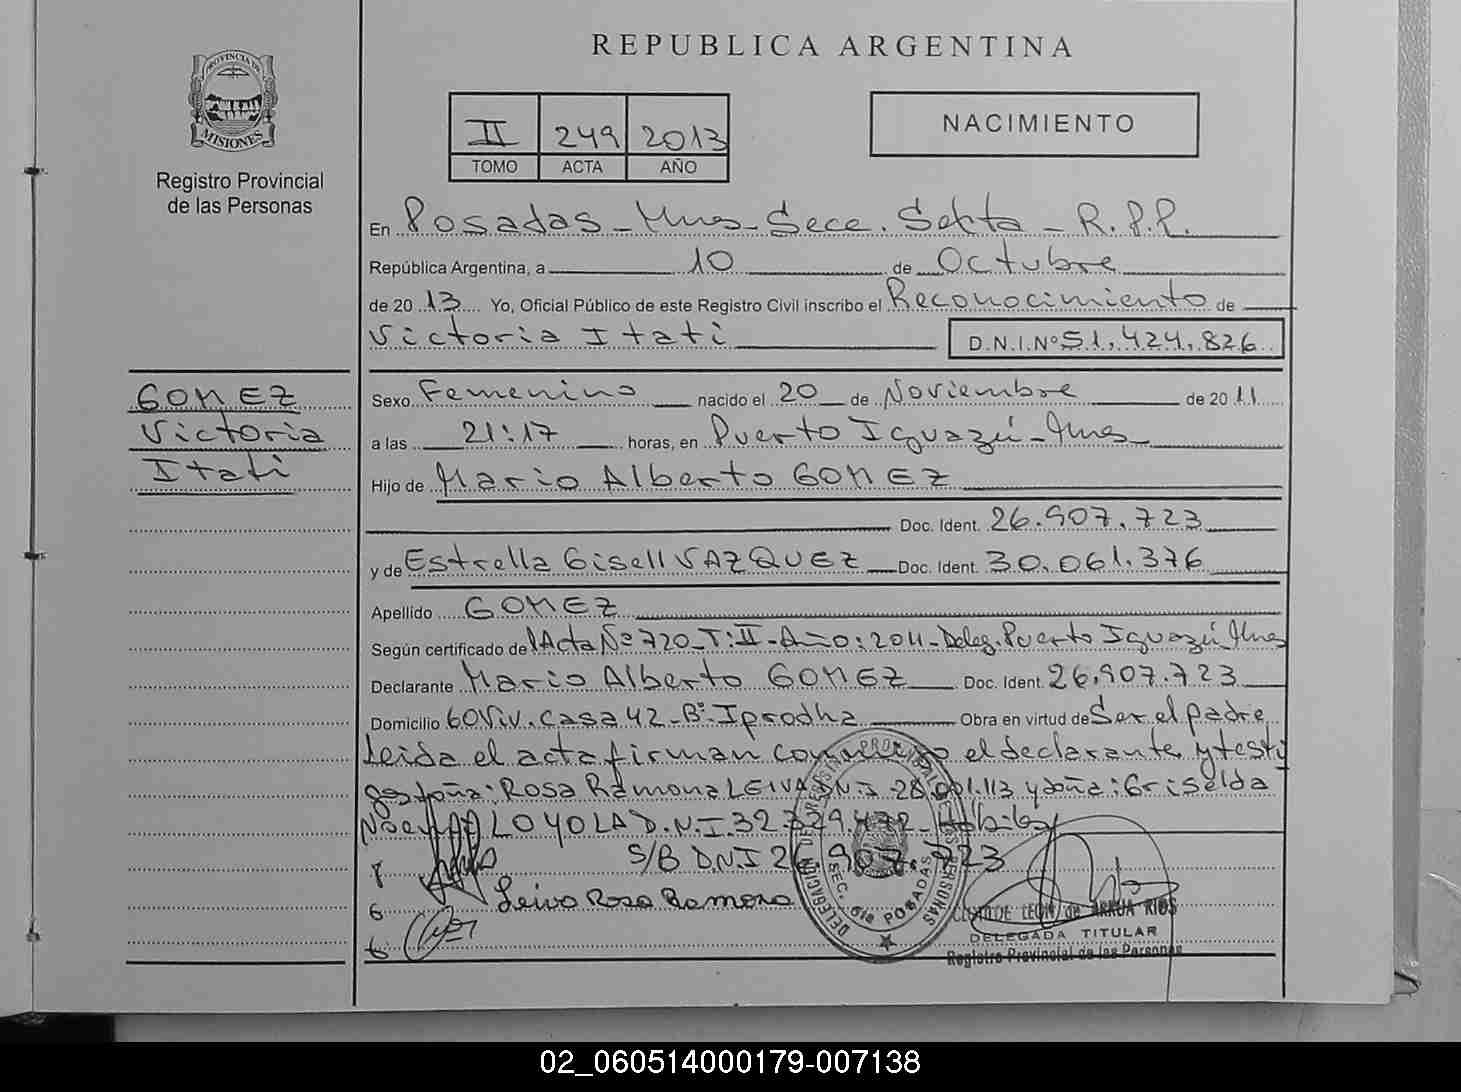 PROVINCIA DE
MISIONES
Registro Provincial
de las Personas
REPUBLICA ARGENTINA
II 249 2013
TOMO ACTA AÑO
NACIMIENTO
En Posadas - Mnes - Secc. Sexta - R.P.P.
República Argentina, a 10 de Octubre
de 20 13 Yo, Oficial Público de este Registro Civil inscribo el Reconocimiento de
Victoria Itati D.N.I.Nº 51.424.826
GOMEZ
Victoria
Itati
Sexo Femenino nacido el 20 de Noviembre de 20 11
a las 21:17 horas, en Puerto Iguazú - Mnes
Hijo de Mario Alberto GOMEZ
Doc. Ident. 26.907.723
y de Estrella Gisell VAZQUEZ Doc. Ident. 30.061.376
Apellido GOMEZ
Según certificado de Acta Nº 720 - T: II - Año: 2011 - Deleg. Puerto Iguazú Mnes
Declarante Mario Alberto GOMEZ Doc. Ident. 26.907.723
Domicilio 60 Viv. casa 42 - Bº - Iprodha Obra en virtud de Ser el padre
Leida el acta firman conmigo el declarante y testi
gos doña: Rosa Ramona LEIVA D.N.I. 28.001.113 y doña: Griselda
LOYOLA D.N.I. 32.329.472 - Hábiles
S/B D.N.I 26.907.723
Leiva Rosa Ramona
DELEGACION DEL REGISTRO PROVINCIAL DE LAS PERSONAS
SEC. 6ta POSADAS
CLOTILDE LEON de ARRUA RIOS
DELEGADA TITULAR
Registro Provincial de las Personas
02_060514000179-007138